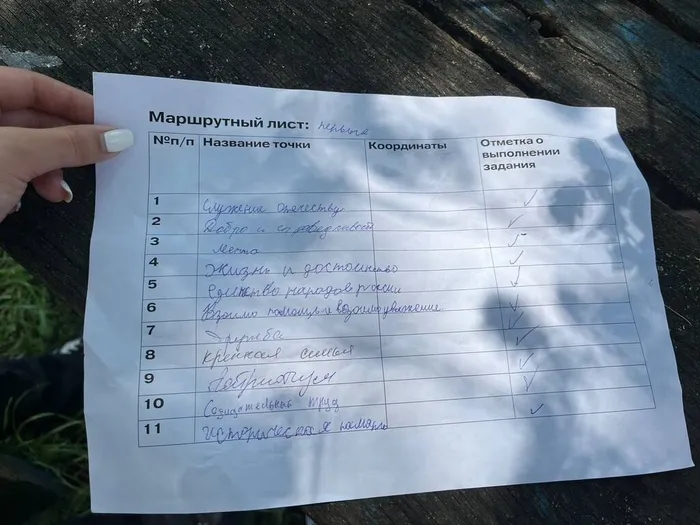 Маршрутный лист: первых
№п/п Название точки Координаты Отметка о выполнении задания
1 Служение отечеству ✓
2 Добро и справедливость ✓
3 мечта ✓
4 Жизнь и достоинство ✓
5 Единство народов россии ✓
6 Взаимо помощь и взаимоуважение ✓
7 Дружба ✓
8 крепкая семья ✓
9 ✓
10 Созидательный труд ✓
11 историческая память ✓